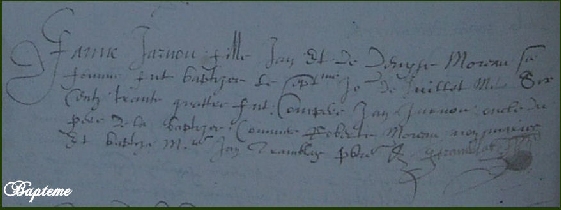 Janne Jarnou fille Jan et de Denyse Moreau sa
femme fut baptizee le sept.me Jo. de Juillet Mil Six
Centz trante quattre fut Compere Jan Jarnou oncle du
pere de la baptizee Commere Moreau
Et baptize Jan Tranblay pbre
Bapteme